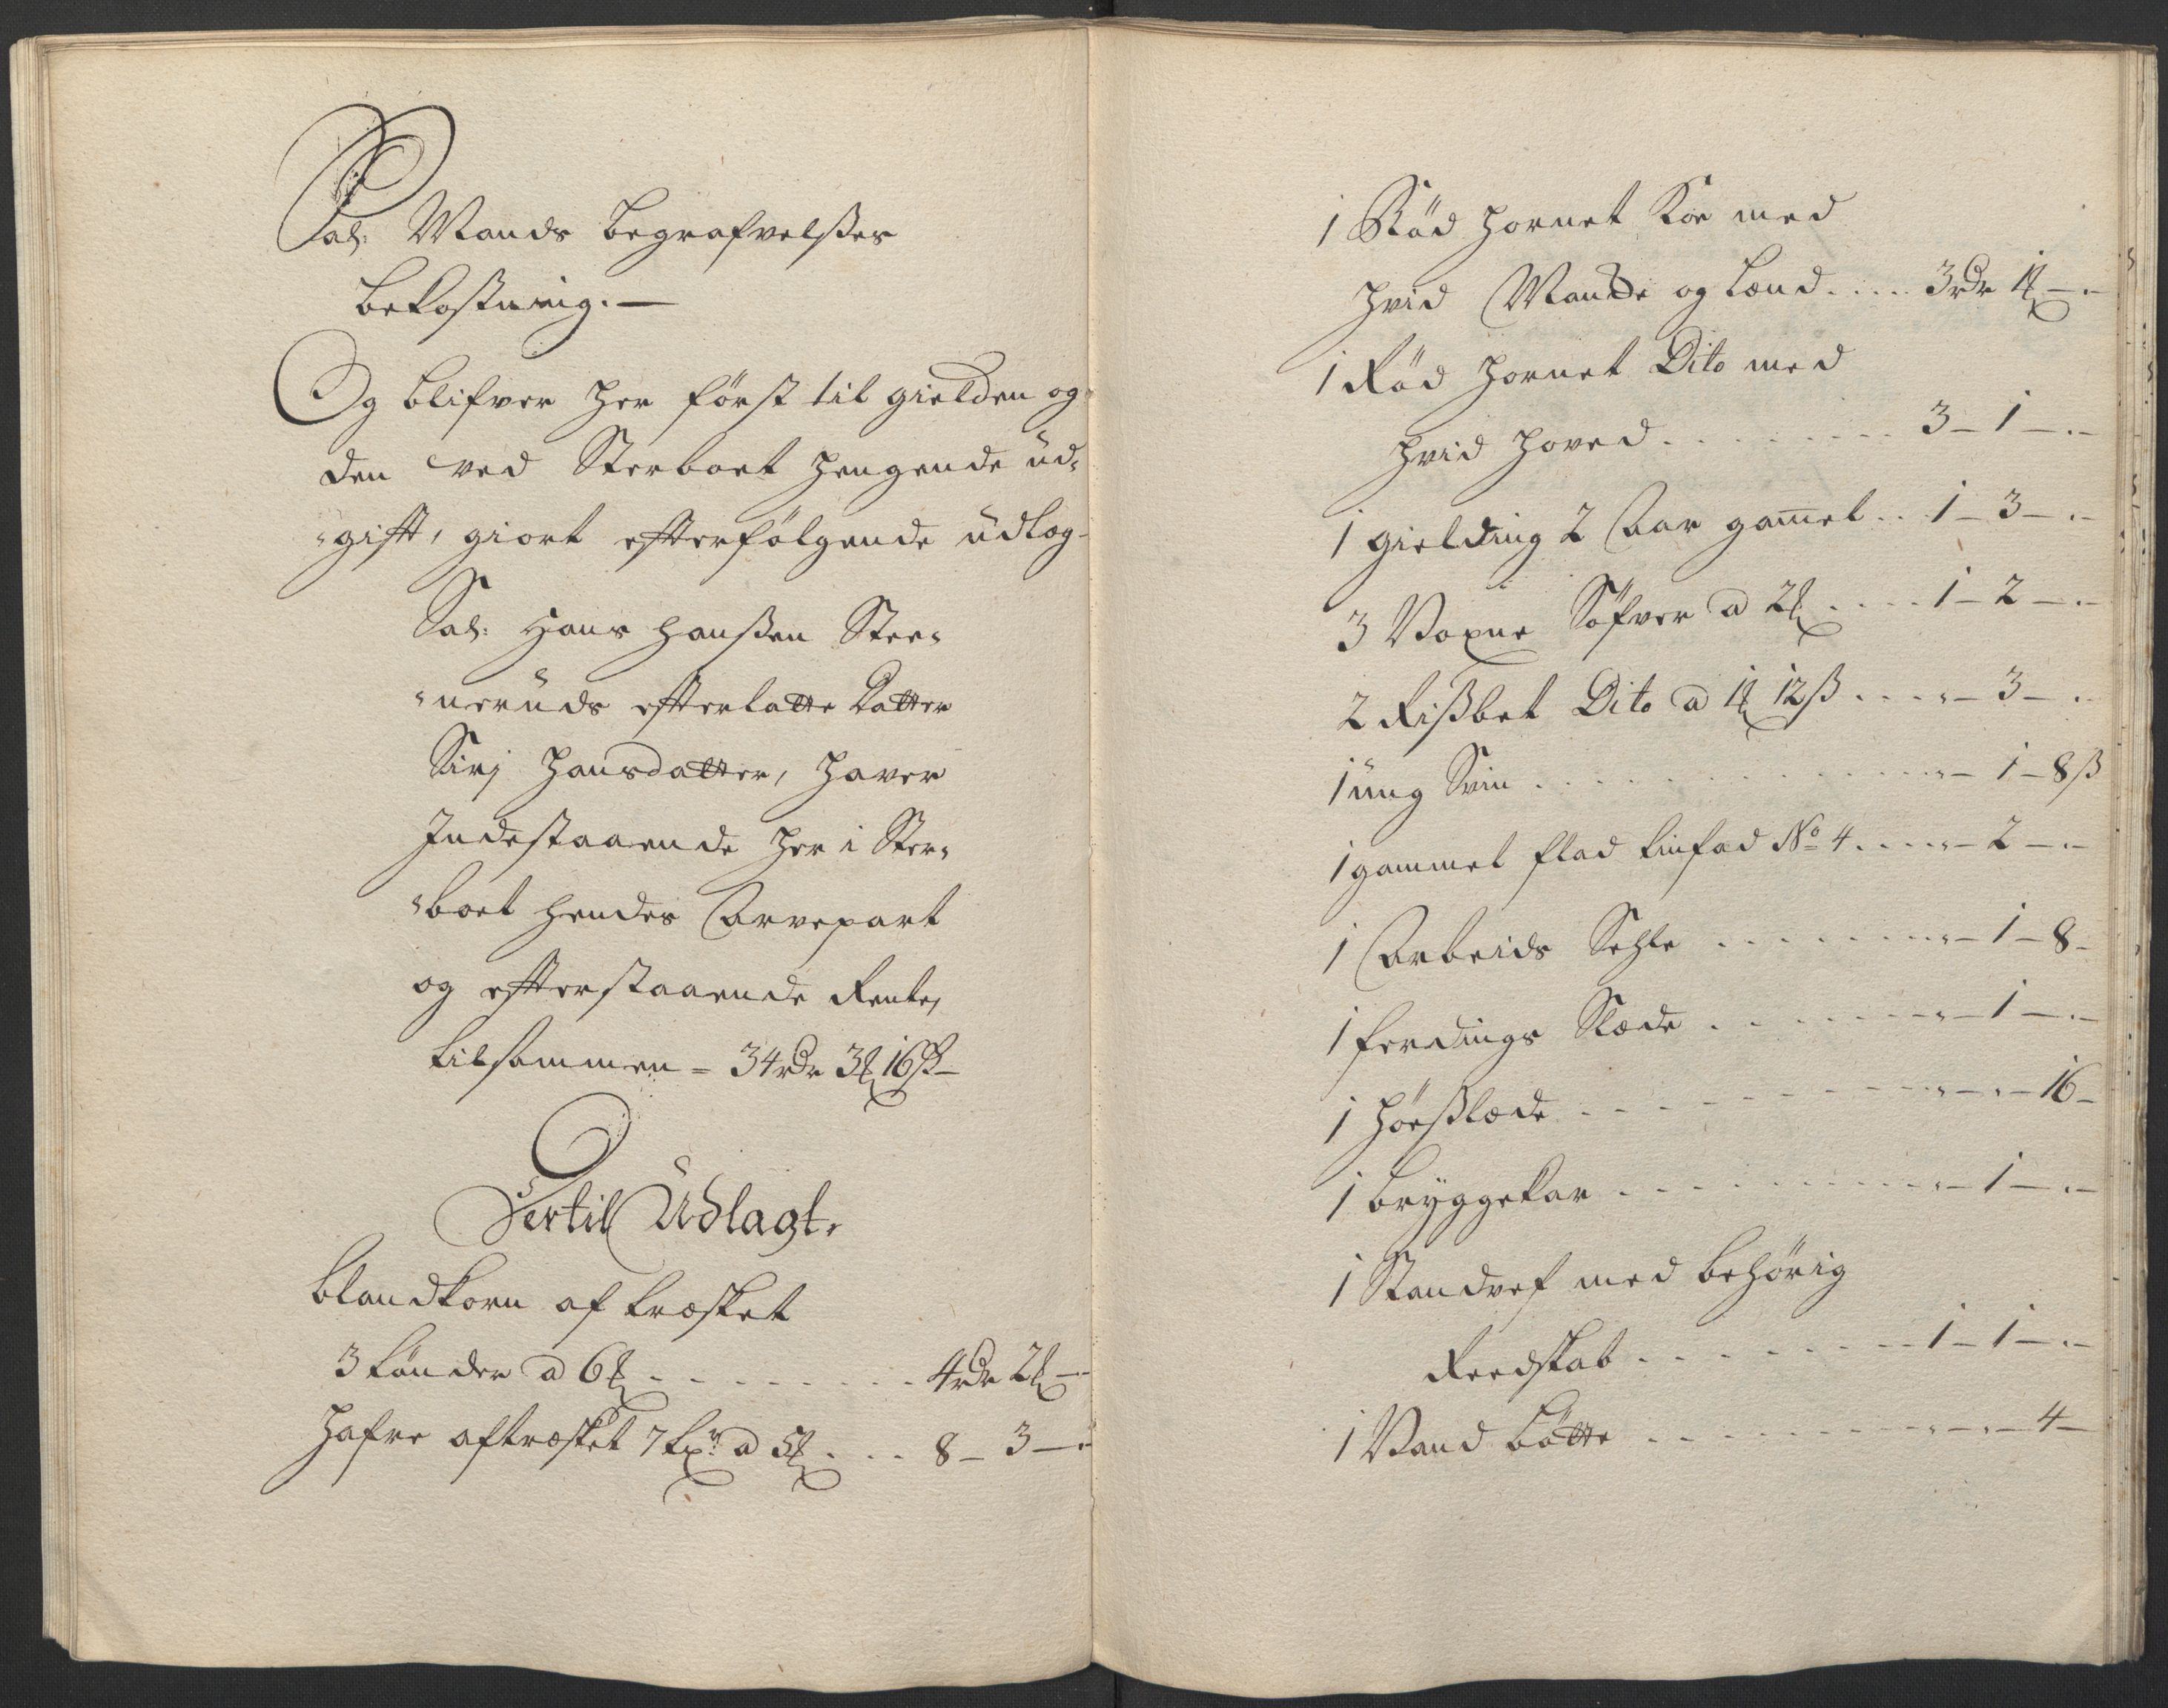 Sal: Mands begrafvelßes
bekostning. —
Og blifver her först til gielden og
den ved Sterboet hengende üd⸗
⸗gift, giort efterfölgende üdlog
Sal: Hans Hanßen Ster⸗
⸗nerüds efterlatte Datter
Sirj Hansdatter, haver
Indestaaende her i Ster⸗
⸗boet hendes Arvepart
og efterstaaende Rente,
tilsammen = 34 rdr 3 ʒ 16 ß —
Hertil Udlagt.
Blandkorn aftræsket
3 tönder a 6 ʒ . . . . . . . . 4 rdr 2 ʒ —
Hafre aftræsket 7 tr: a 5 ʒ . . . . 8 — 3 — .
1 Röd hornet Koe med
hvid Mancke og Lænd . . . . 3 rdr 1 ʒ — . —
1 Röd hornet Dito med
hvid hoved . . . . . . . . . 3 — 1 — . —
1 gielding 2 Aar gam̄el . . 1 — 3 — . —
3 Voxne Söfver a 2 ʒ . . . . 1 — 2 — . —
2 Rißbet Dito a 1 ʒ 12 ß . . . . „ — 3 — . —
1 üng Svin . . . . . . . . . . „ — 1 — 8 ß
1 gammel flad tinfad No 4 . . . . „ — 2 — . —
1 Arbeids Sehle . . . . . . . „ — 1 — 8 —
1 ferdings Slæde . . . . . . . „ — 1 — . —
1 Höeßlæde . . . . . . . . . „ — „ — 16 —
1 bryggekar . . . . . . . . . „ — 1 — . —
1 Standvef med behörig
Reedskab . . . . . . . . 1 — 1 — . —
1 Vand bötte . . . . . . . . „ — „ — 4 —